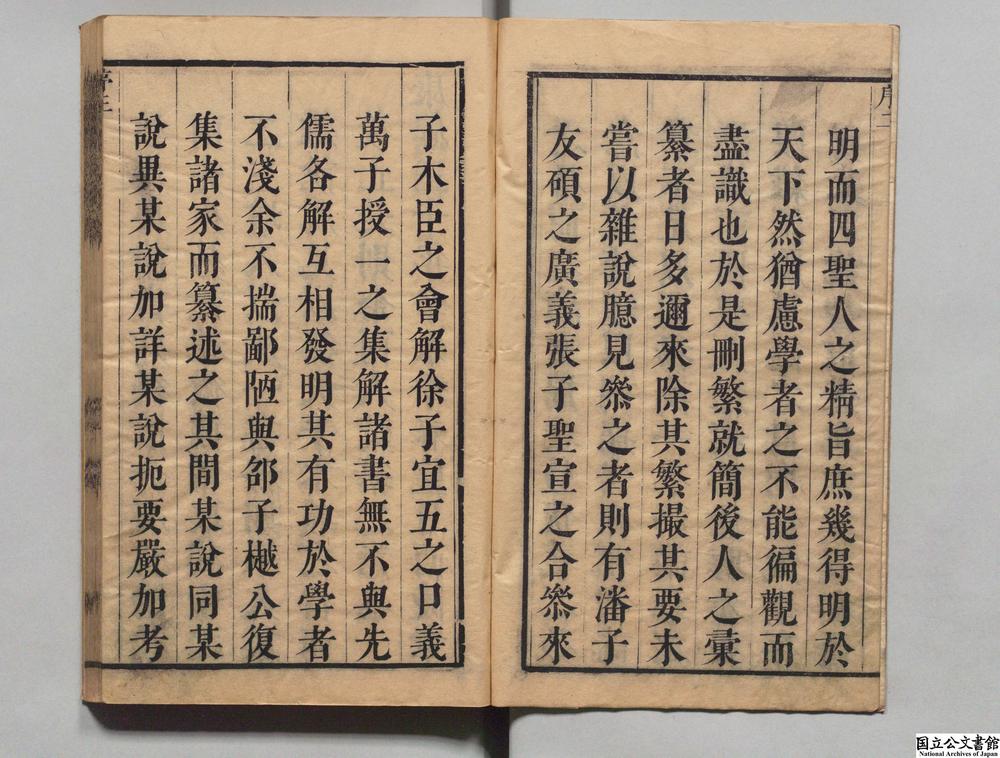 序二
明而四聖人之精旨庶幾得明於
天下然猶慮學者之不能徧觀而
盡識也於是刪繁就簡後人之彙
纂者日多邇來除其繁撮其要未
嘗以雜說臆見叅之者則有潘子
友碩之廣義張子聖宣之合叅來
子木臣之會解徐子宜五之口義
萬子授一之集解諸書無不與先
儒各解互相發明其有功於學者
不淺余不揣鄙陋與邵子樾公復
集諸家而纂述之其間某說同某
說異某說加詳某說扼要嚴加考
序三
国立公文書館
National Archives of Japan